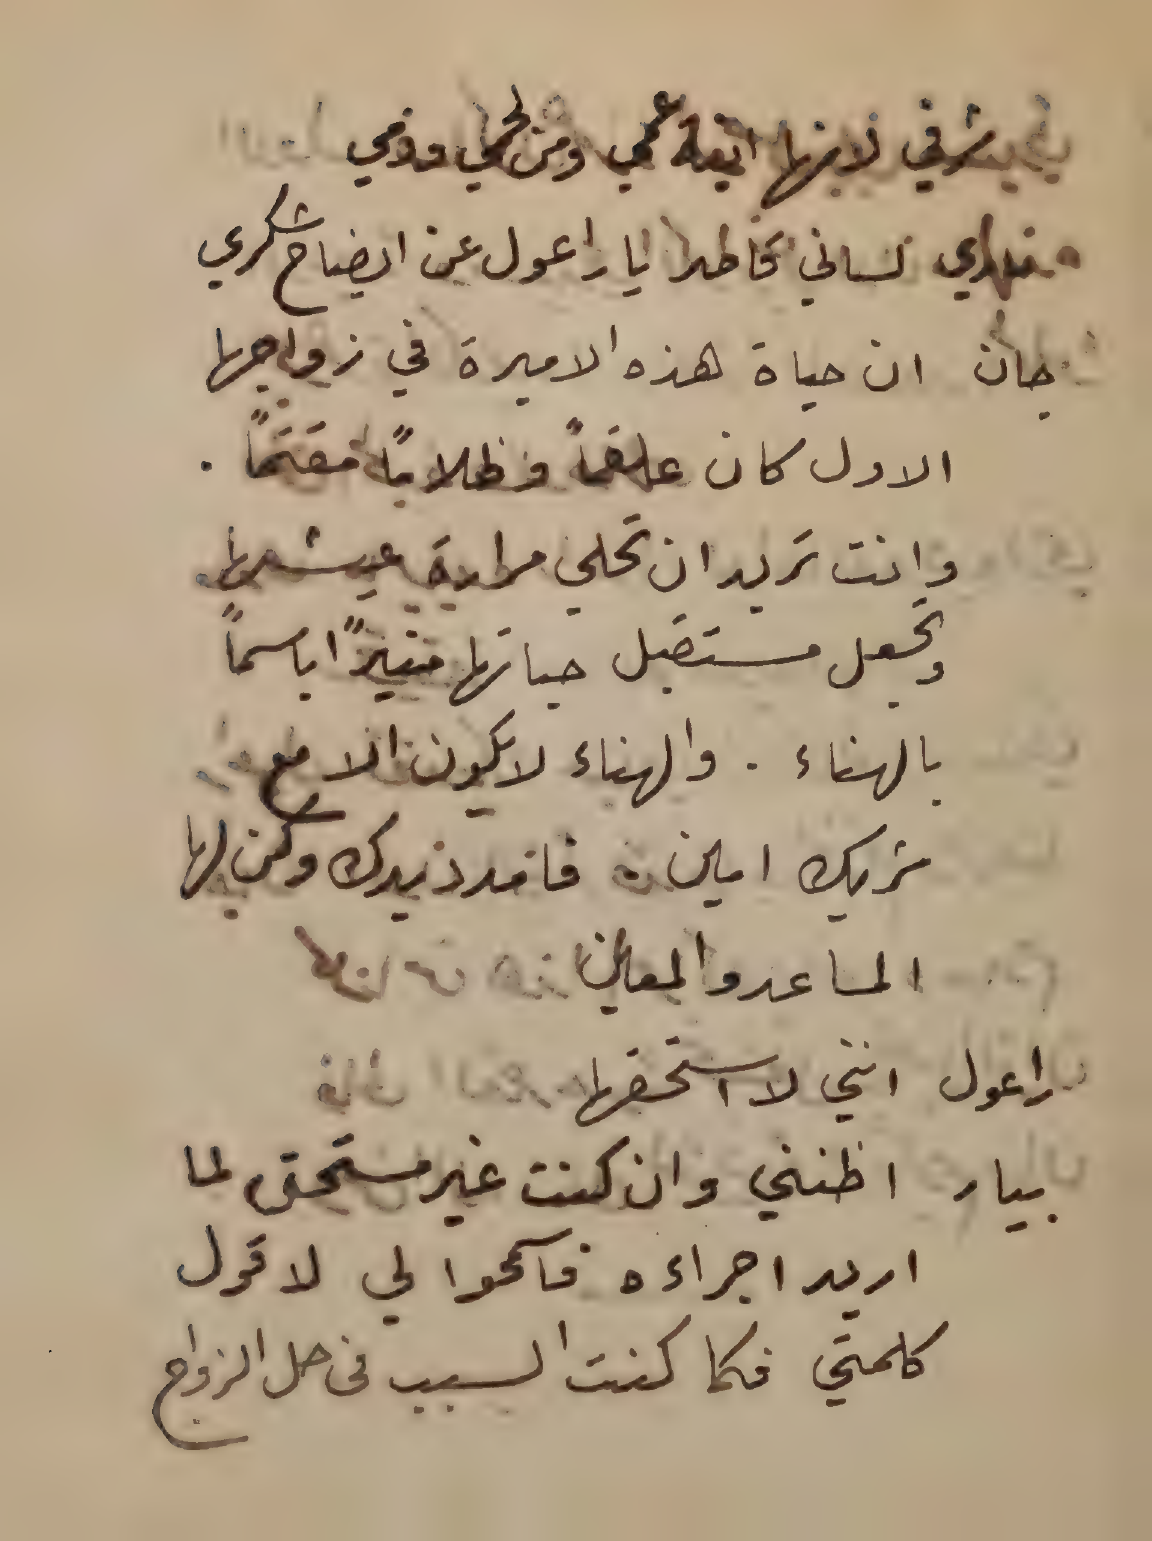 يشرفني لانها ابنة عمي ومن لحمي ودمي
لساني تخاطلا يا راعول عن ايضاح شكري
جان ان حياة هذه الاميرة في زواجها
الاول كان علقماً وظلاماً مقتماً .
وانت تريد ان تحلي مرارة عيشها
وتجعل مستقبل حياتها منيراً باسماً
بالهناء . والهناء لا يكون الا مع
شريك امين فامدد يدك وكن لها
المساعد والمعين
راعول انني لا استحقها
بيار اظنني وان كنت غير مستحق لما
اريد اجراءه فاسمحوا لي لاقول
كلمتي فكما كنت السبب في حل الزواج